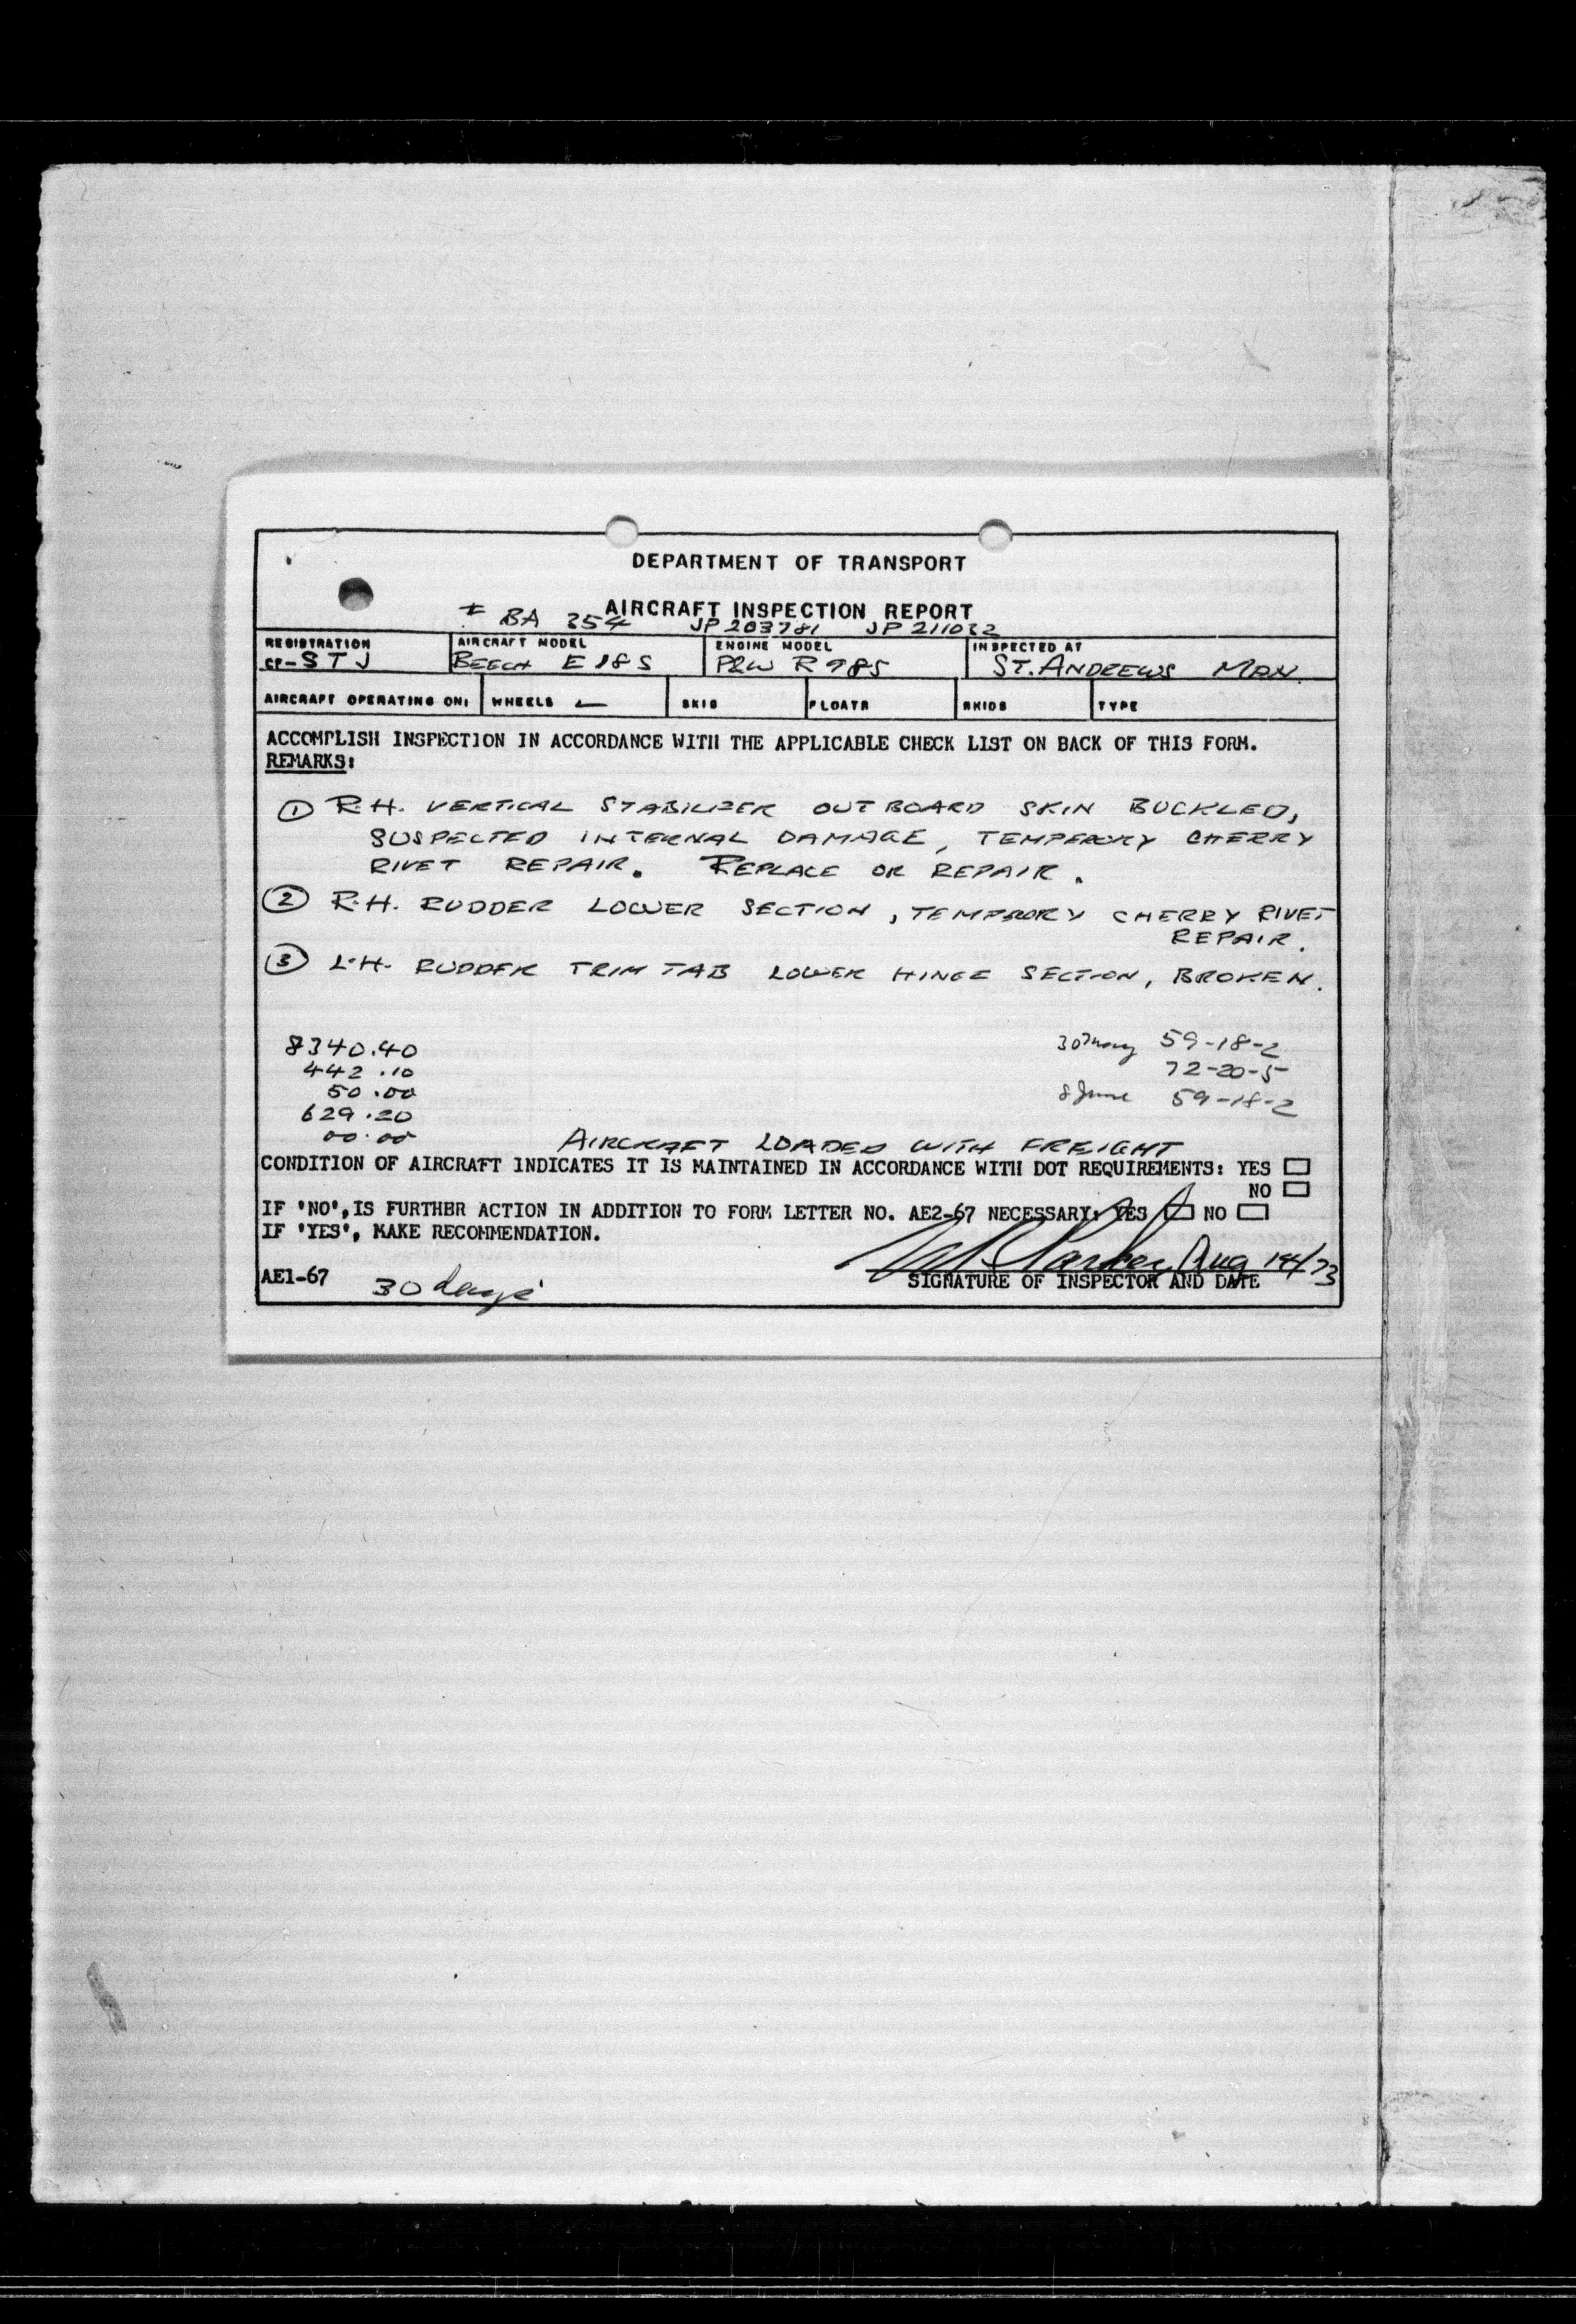 DEPARTMENT OF TRANSPORT
AIRCRAFT INSPECTION REPORT
# BA 354 JP 203781 JP 211032
REGISTRATION AIRCRAFT MODEL ENGINE MODEL INSPECTED AT
CF-STJ BEECH E18S P&W R985 ST. ANDREWS MAN.
AIRCRAFT OPERATING ON: WHEELS SKIS FLOATS SKIDS TYPE
ACCOMPLISH INSPECTION IN ACCORDANCE WITH THE APPLICABLE CHECK LIST ON BACK OF THIS FORM.
REMARKS:
① R.H. VERTICAL STABILIZER OUTBOARD SKIN BUCKLED,
SUSPECTED INTERNAL DAMAGE, TEMPERORY CHERRY
RIVET REPAIR. REPLACE OR REPAIR.
② R.H. RUDDER LOWER SECTION, TEMPRORY CHERRY RIVET
REPAIR.
③ L.H. RUDDER TRIM TAB LOWER HINGE SECTION, BROKEN.
8340.40 30 May 59-18-2
442.10 72-20-5
50.00 8 June 59-18-2
629.20
00.00
AIRCRAFT LOADED WITH FREIGHT
CONDITION OF AIRCRAFT INDICATES IT IS MAINTAINED IN ACCORDANCE WITH DOT REQUIREMENTS: YES
NO
IF 'NO', IS FURTHER ACTION IN ADDITION TO FORM LETTER NO. AE2-67 NECESSARY: YES NO
IF 'YES', MAKE RECOMMENDATION.
Parker Aug 14/73
SIGNATURE OF INSPECTOR AND DATE
AE1-67 30 days